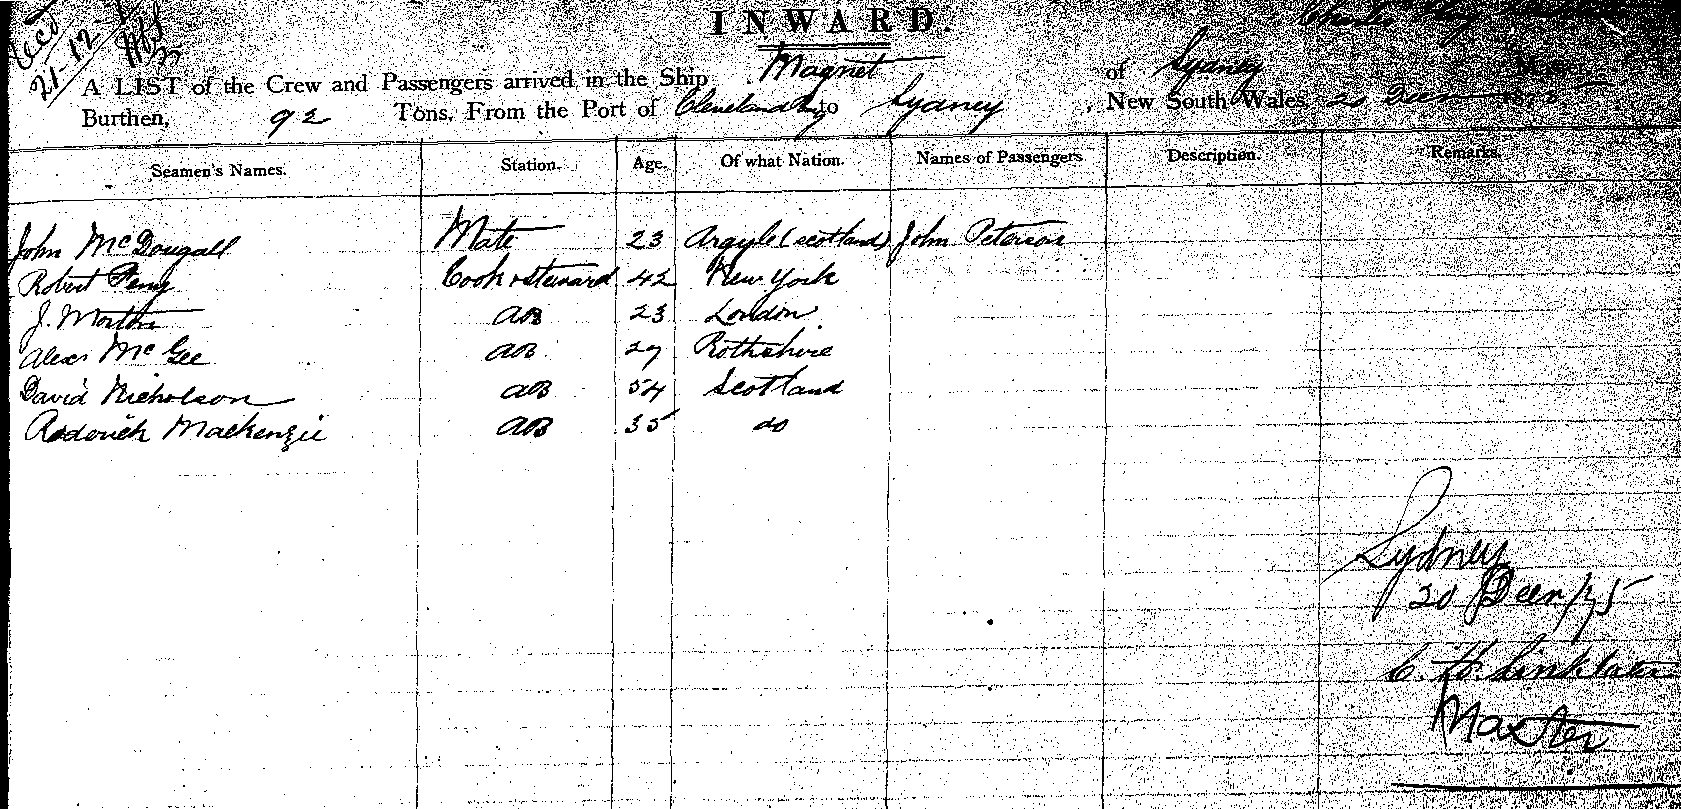 INWARD.
Recd
21-12-
Charles
A LIST of the Crew and Passengers arrived in the Ship Magnet of Sydney Master
Burthen, 92 Tons. From the Port of Cleveland Bay to Sydney, New South Wales, 20 Decem 187
Seamen's Names. Station. Age. Of what Nation. Names of Passengers Description. Remarks.
John McDougall Mate 23 Argyle (Scotland) John Peterson
Robert Cook & Steward 42 New York
J. Morton AB 23 London
Alexr McGee AB 27 Rothshire
David Nicholson AB 54 Scotland
Rodorick Mackenzie AB 35 do
Sydney
20 Decr/75
C. H. Linklater
Master